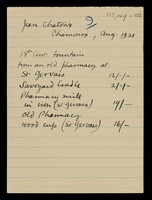 Jean Chatoux
Chamonix, Aug. 1931
18th Cent. Fountain
from an old pharmacy at
St Gervais 12/-/-
Savoyard Cradle 2/-/-
Pharmacy mill
in use (St Gervais) 19/-
Old Pharmacy
wood cup (St Gervais) 16/-